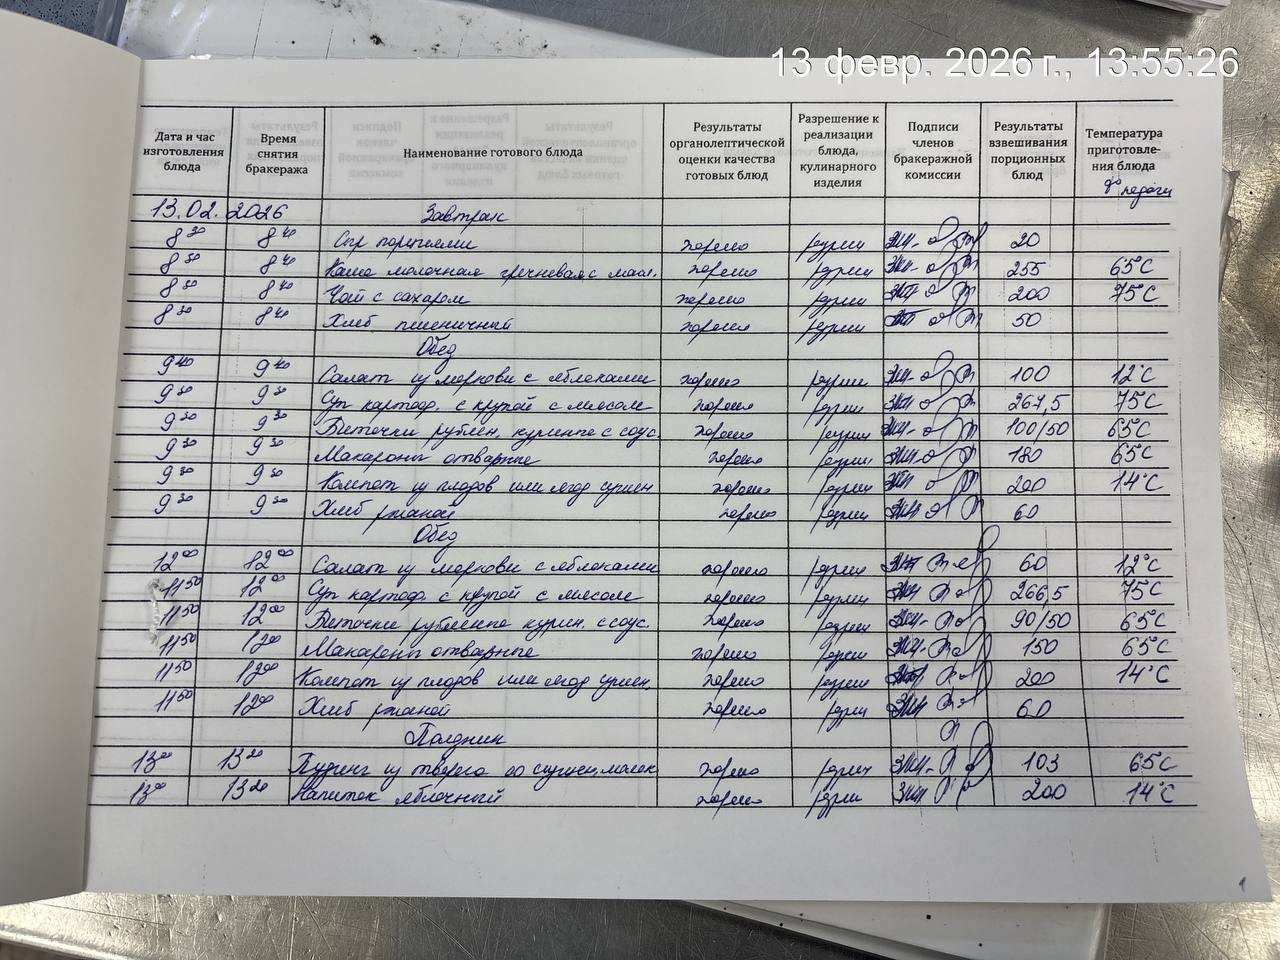 13 февр. 2026 г., 13:55:26
Дата и час изготовления блюда | Время снятия бракеража | Наименование готового блюда | Результаты органолептической оценки качества готовых блюд | Разрешение к реализации блюда, кулинарного изделия | Подписи членов бракеражной комиссии | Результаты взвешивания порционных блюд | Температура приготовле-ния блюда t° подачи
13.02.2026 Завтрак
8 30 8 40 Сыр порциями хорошо разреш 20
8 30 8 40 Каша молочная гречневая с масл. хорошо разреш 255 65°C
8 30 8 40 Чай с сахаром хорошо разреш 200 75°C
8 30 8 40 Хлеб пшеничный хорошо разреш 50
Обед
9 40 9 40 Салат из моркови с яблоками хорошо разреш 100 12°C
9 30 9 30 Суп картоф. с крупой с мясом хорошо разреш 267,5 75°C
9 30 9 30 Биточки рублен. куриные с соус. хорошо разреш 100/50 65°C
9 30 9 30 Макароны отварные хорошо разреш 180 65°C
9 30 9 30 Компот из плодов или ягод сушен. хорошо разреш 200 14°C
9 30 9 30 Хлеб ржаной хорошо разреш 60
Обед
12 00 12 00 Салат из моркови с яблоками хорошо разреш 60 12°C
11 50 12 00 Суп картоф. с крупой с мясом хорошо разреш 266,5 75°C
11 50 12 00 Биточки рубленные курин. с соус. хорошо разреш 90/50 65°C
11 50 12 00 Макароны отварные хорошо разреш 150 65°C
11 50 12 00 Компот из плодов или ягод сушен. хорошо разреш 200 14°C
11 50 12 00 Хлеб ржаной хорошо разреш 60
Полдник
13 00 13 20 Пудинг из творога со сгущен. молок хорошо разреш 103 65°C
13 00 13 20 Напиток яблочный хорошо разреш 200 14°C
1